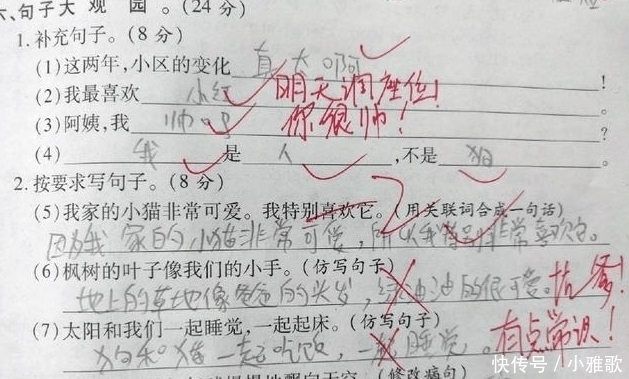 六、句子大观园。(24分)
1.补充句子。(8分)
(1)这两年,小区的变化 真大啊 !
(2)我最喜欢 小红 。 明天调座位!
(3)阿姨,我 帅吗 ? 你很帅!
(4) 我 是 人 ,不是 狗 。
2.按要求写句子。(8分)
(5)我家的小猫非常可爱。我特别喜欢它。(用关联词合成一句话)
因为我家的小猫非常可爱,所以我特别非常喜欢它。
(6)枫树的叶子像我们的小手。(仿写句子)
地上的草地像爸爸的头发,绿油油的很可爱。 坑爹!
(7)太阳和我们一起睡觉,一起起床。(仿写句子)
狗和猫一起吃饭,一起睡觉。 有点常识!
(修改病句)
快传号 / 小雅歌